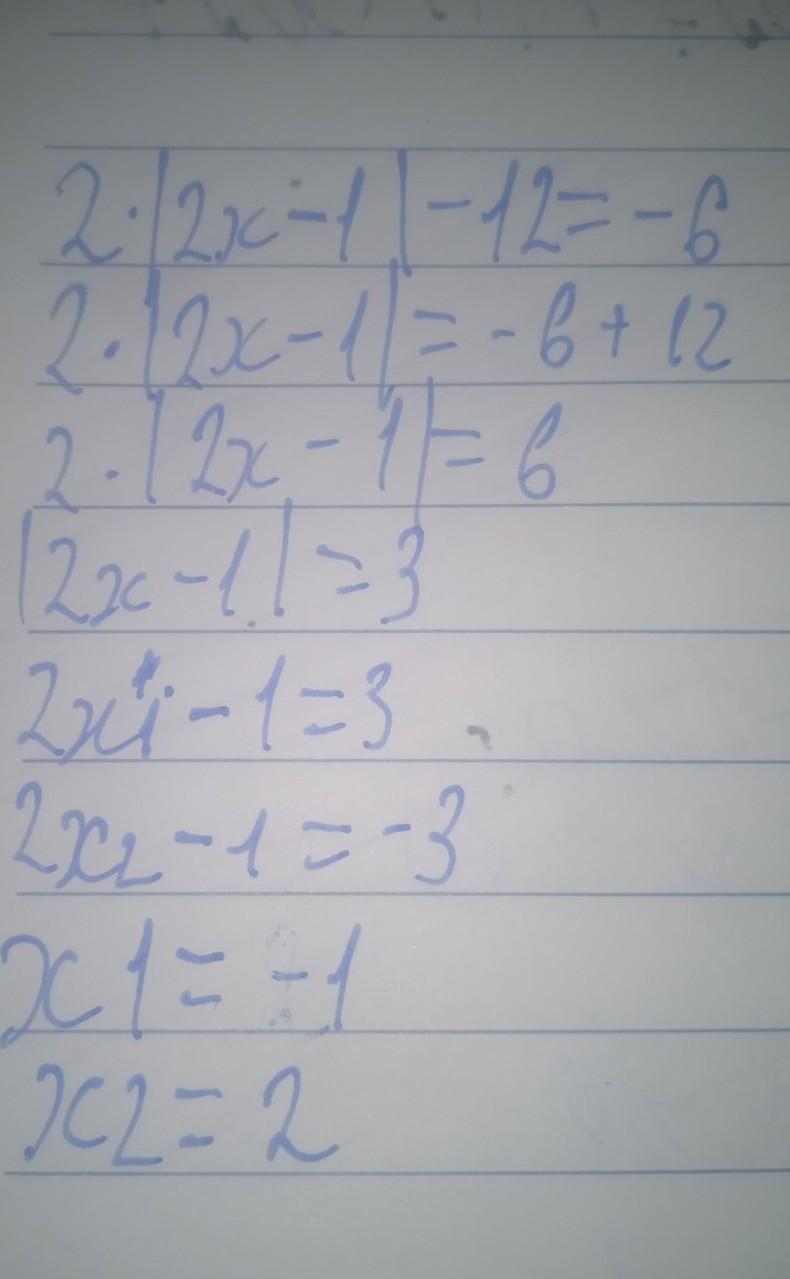 2·|2x-1|-12=-6
2·|2x-1|=-6+12
2·|2x-1|=6
|2x-1|=3
2x1-1=3
2x2-1=-3
x1=-1
x2=2